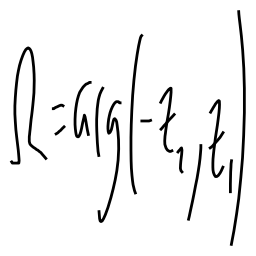 Ω = arg(-z₂, z₁)